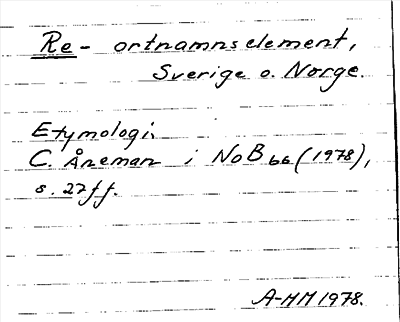 Re- ortnamnselement,
Sverige o. Norge.
Etymologi:
C. Åneman i NoB 66 (1978),
s. 27ff.
A-MM 1978.